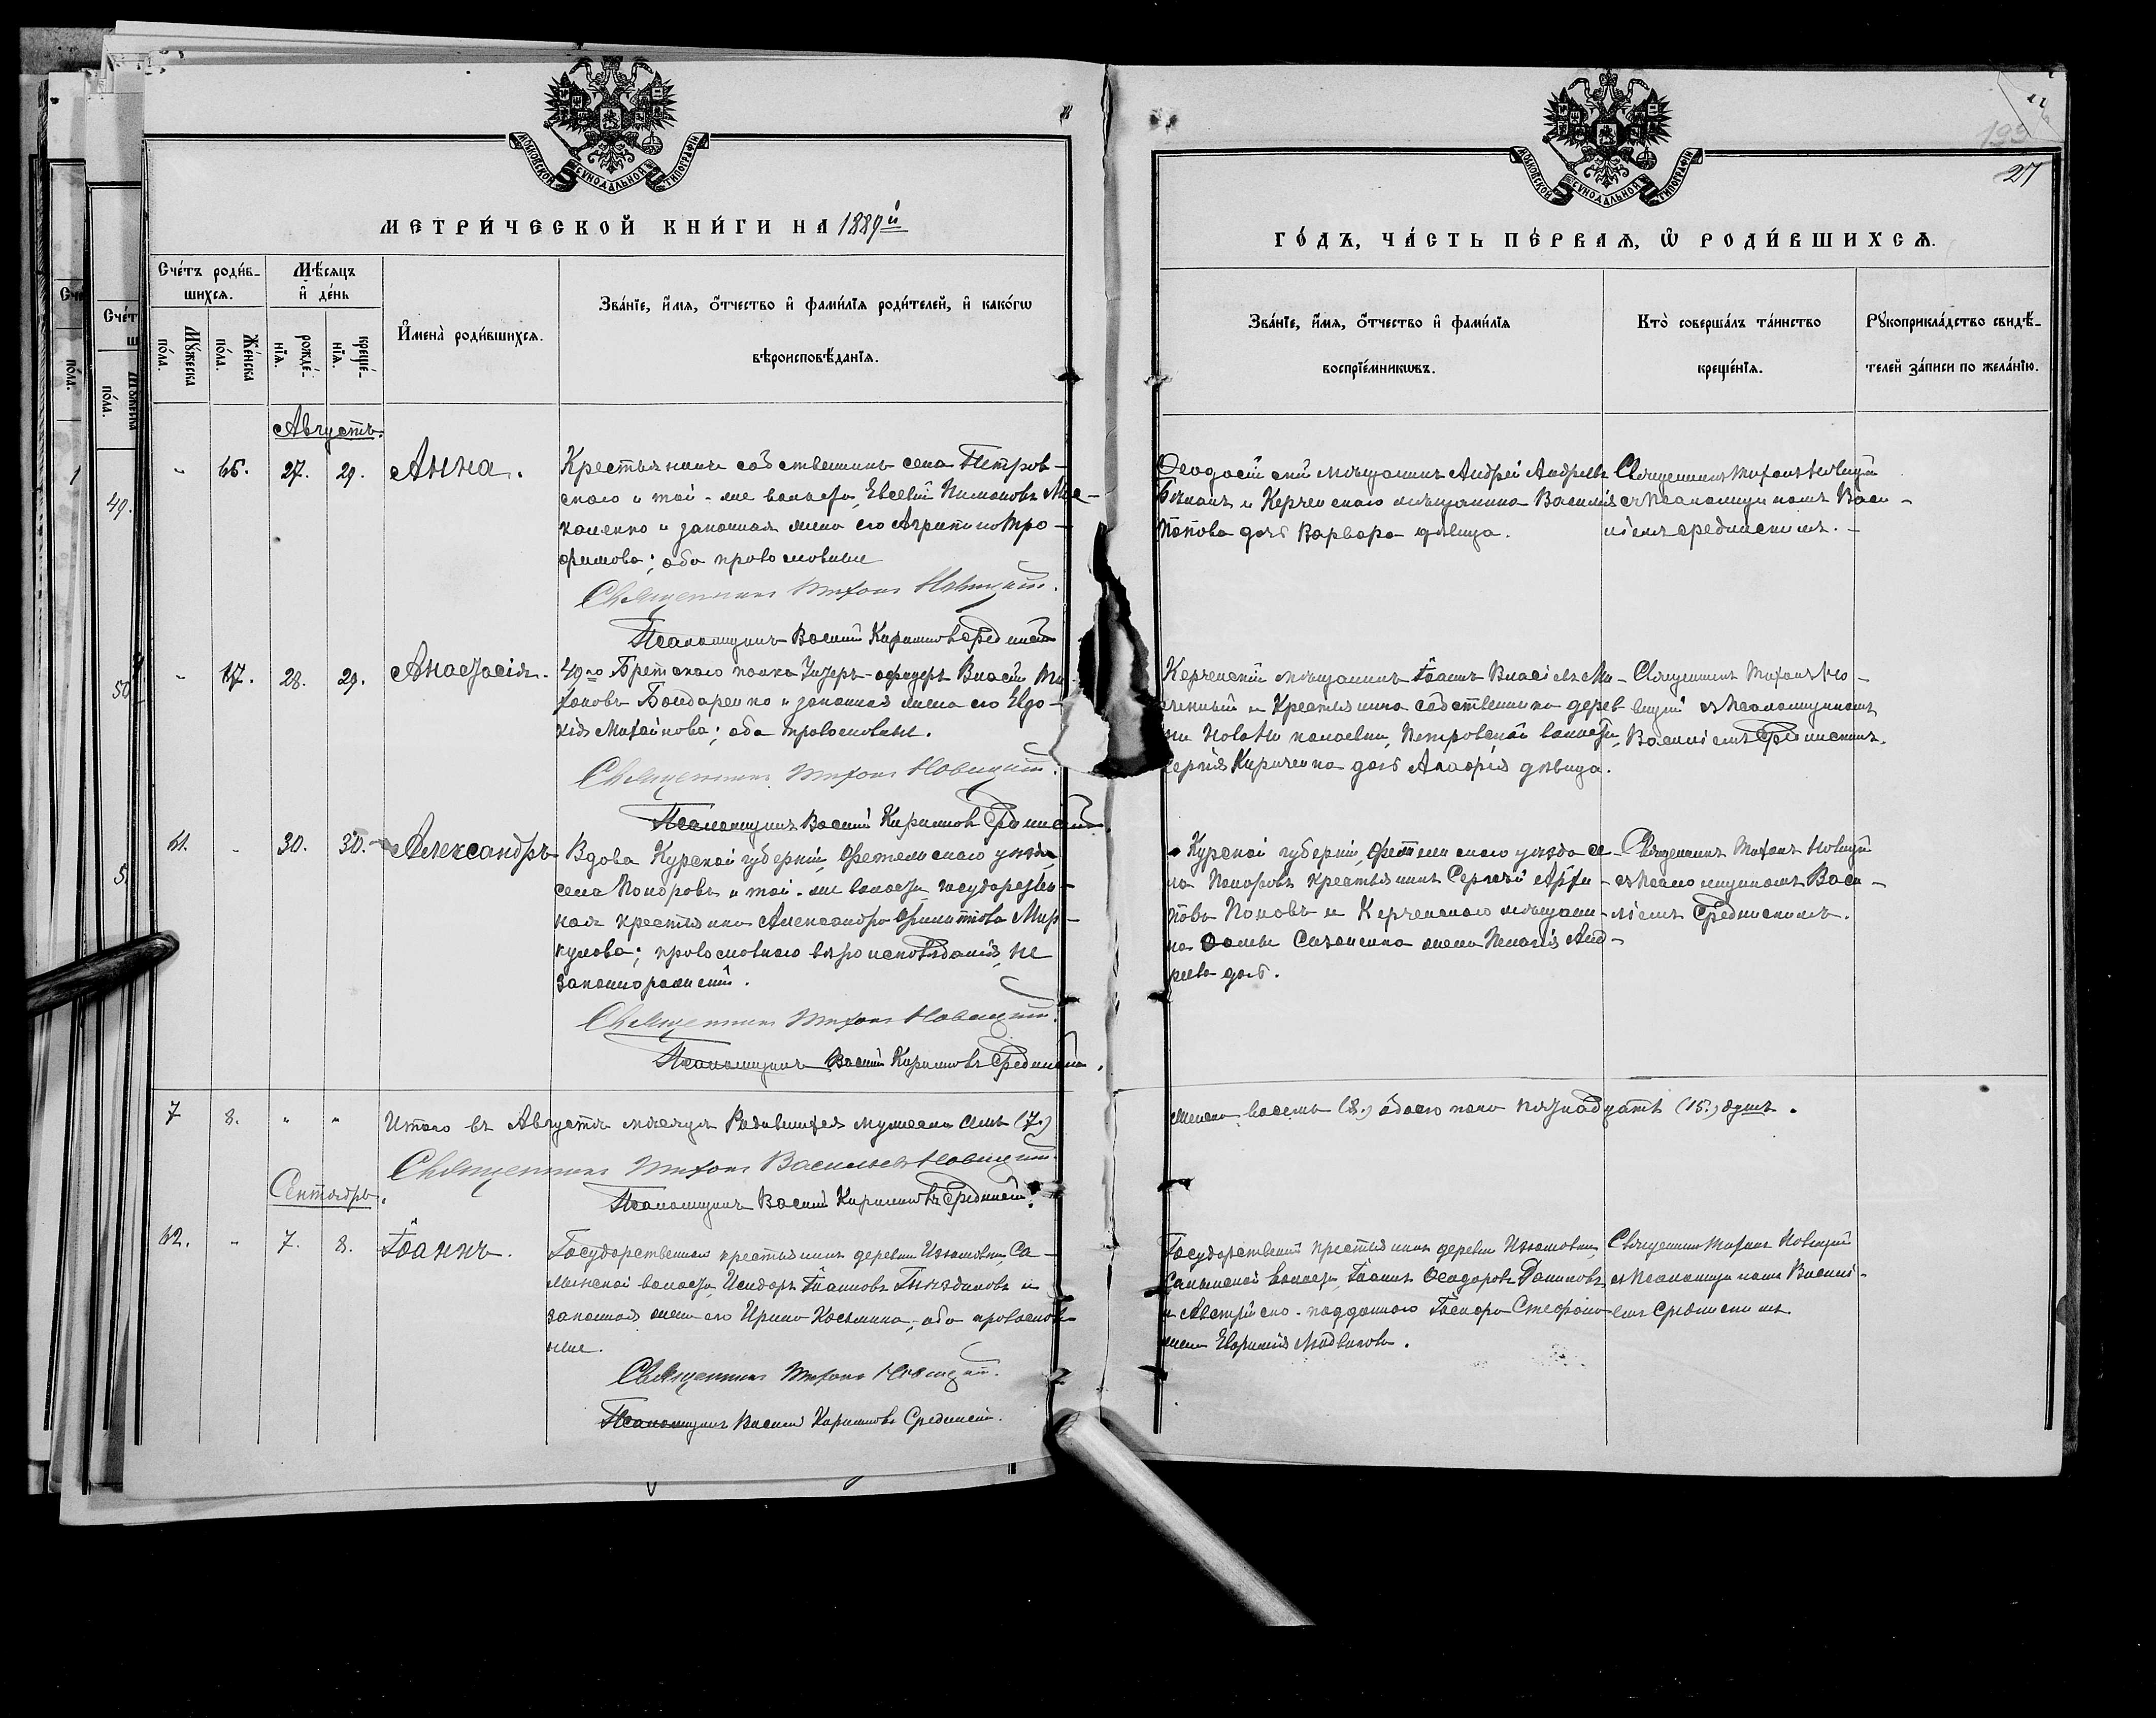 МОСКОВСКОЙ СѴНОДАЛЬНОЙ ТИПОГРАФІИ
МЕТРИ́ЧЕСКОЙ КНИ́ГИ НА 1889й
Сче́тъ роди́в-
шихсѧ.
Мѣ́сяцъ
и҆ де́нь
Мꙋ́жеска
по́ла.
Же́нска
по́ла.
рожде́-
нїѧ.
креще́-
нїѧ.
И҆мена̀ роди́вшихсѧ.
Зва́нїе, и҆́мѧ, ѻ҆́тчество и҆ фами́лїѧ роди́телей, и҆ како́гѡ
вѣроисповѣ́данїѧ.
Августъ.
" 65. 27. 29. Анна.
Крестьянинъ собственникъ села Петров-
скаго и той-же волости, Евсевій Пимоновъ
и законная жена его Агрипина Тро-
фимова; оба православные
Священникъ Тихонъ Новицкій.
Псаломщикъ Василій Кириловъ Срединскій
" 28. 29. Анастасія.
49го Брестскаго полка Унтеръ-офицеръ Власій
Бондаренко и законная жена его Евдо-
кія Михайлова; оба православные.
Священникъ Тихонъ Новицкій.
Псаломщикъ Василій Кириловъ Срединскій
61. " 30. 30. Александръ
Вдова Курской губерніи, Фатежскаго уѣзда,
села Понировъ и той-же волости государствен-
ная крестьянка Александра Филиппова
православнаго вѣроисповѣданія, не
законнорожденный.
Священникъ Тихонъ Новицкій.
Псаломщикъ Василій Кириловъ Срединскій.
7 8. " " Итого въ Августѣ мѣсяцѣ Родившихся мужеска семь (7.)
Священникъ Тихонъ Васильевъ Новицкій.
Псаломщикъ Василій Кириловъ Срединскій.
Сентябрь.
62. " 7. 8. Іоаннъ.
Государственный крестьянинъ деревни Изюмовки, Са-
лынской волости, Исидоръ Іоанновъ Гнѣздиловъ и
законная жена его Ирина Косьмина, оба православ-
ные.
Священникъ Тихонъ Новицкій.
Псаломщикъ Василій Кириловъ Срединскій.
МОСКОВСКОЙ СѴНОДАЛЬНОЙ ТИПОГРАФІИ
27
ГО́ДЪ, ЧА́СТЬ ПЕ́РВАѦ, Ѽ РОДИ́ВШИХСѦ.
Зва́нїе, и҆́мѧ, ѻ҆́тчество и҆ фами́лїѧ
воспрїе́мникѡвъ.
Кто̀ соверша́лъ та́инство
креще́нїѧ.
Рꙋкоприкла́дство свидѣ́-
телей за́писи по жела́нїю.
Ѳеодосійскій мѣщанинъ Андрей Андреевъ
и Керченскаго мѣщанина Василія
Попова дочь Варвара дѣвица.
Священникъ Тихонъ Новицкій
съ псаломщикомъ Васи-
ліемъ Срединскимъ.-
Керченскій мѣщанинъ Іоаннъ
и Крестьянина собственника дерев
Петровской волости,
Кириченка дочь дѣвица.
Священникъ Тихонъ Но-
вицкій съ псаломщикомъ
Василіемъ Срединскимъ.
Курской губерніи, Фатежскаго уѣзда се-
ла Понировъ крестьянинъ Сергѣй
Поповъ и Керченскаго мѣщани-
на жена Пелагія Анд-
реева дочь.
Священникъ Тихонъ Новицкій
съ псаломщикомъ Васи-
ліемъ Срединскимъ.
женска восемь (8.) обоего пола пятнадцать (15.) душъ.
Государственный крестьянинъ деревни Изюмовки,
Салынской волости, Іоаннъ Ѳеодоровъ Даниловъ
и Австрійско-подданнаго
жена Евфимія
Священникъ Тихонъ Новицкій
съ псаломщикомъ Василі-
емъ Срединскимъ.